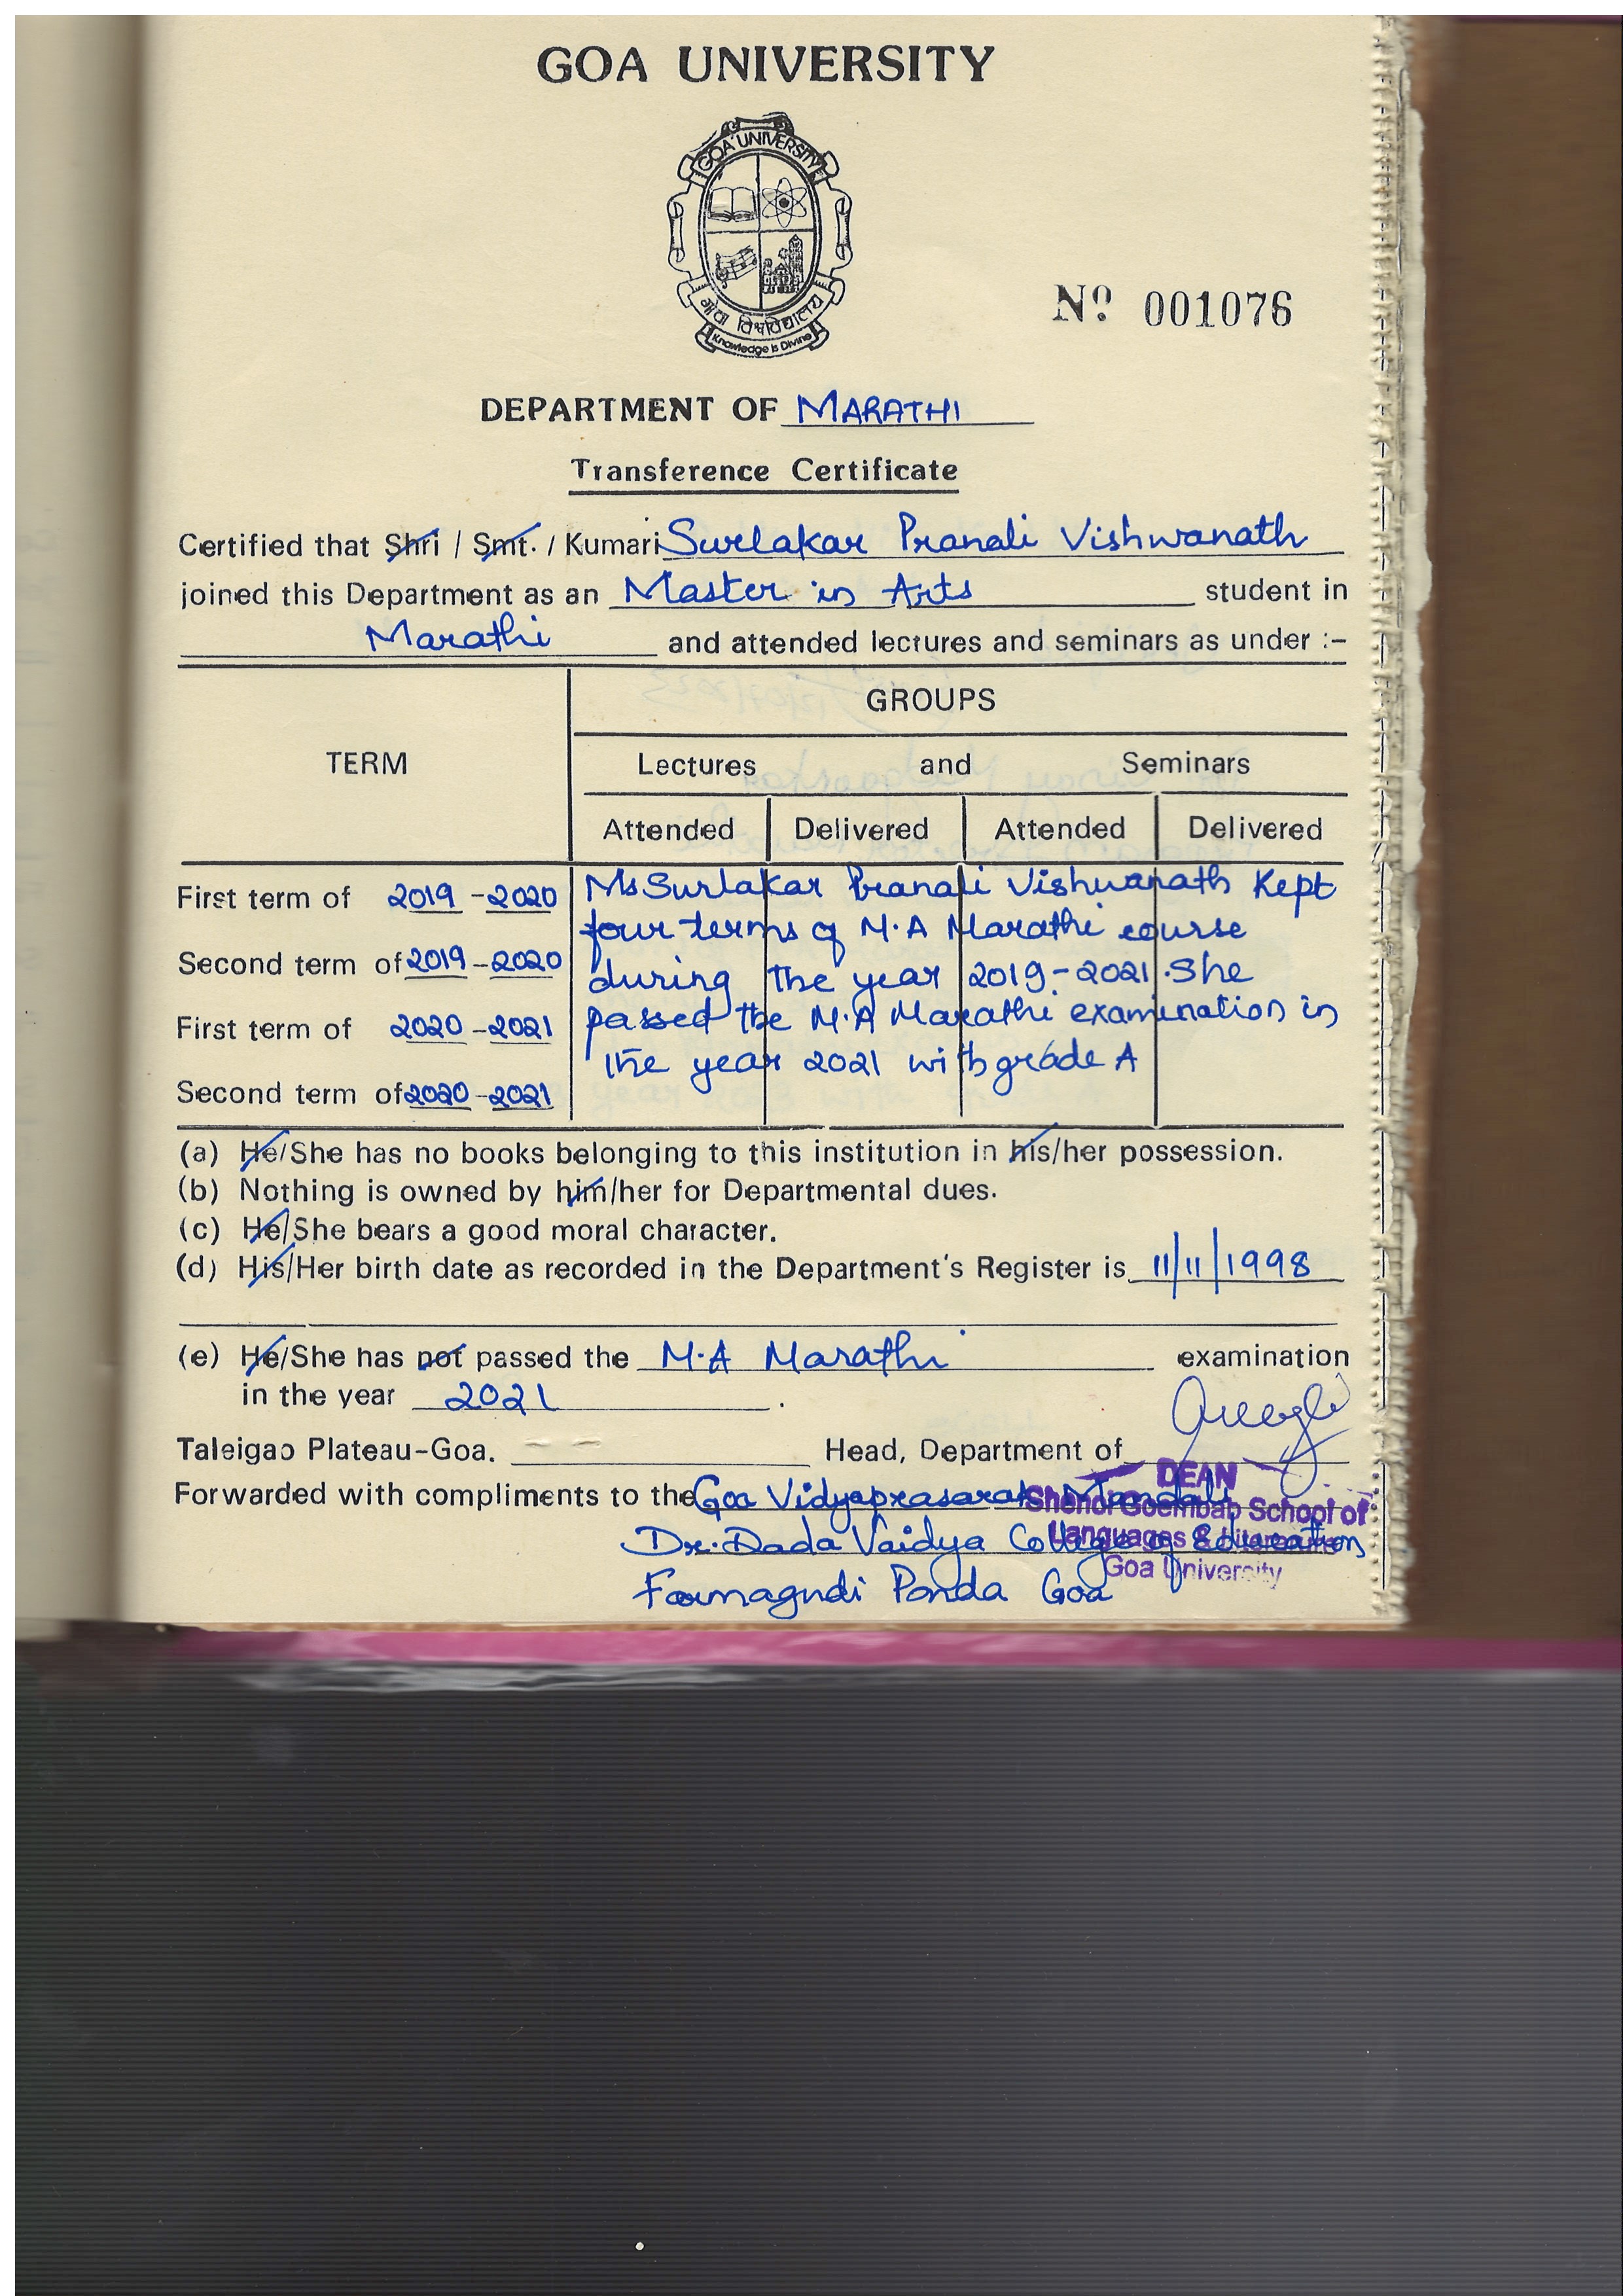 GOA UNIVERSITY
GOA UNIVERSITY
गोवा विश्वविद्यालय
Knowledge is Divine
Nº 001076
DEPARTMENT OF MARATHI
Transference Certificate
Certified that Shri / Smt. / Kumari Surlakar Pranali Vishwanath
joined this Department as an Master in Arts student in
Marathi and attended lectures and seminars as under :-
GROUPS
TERM Lectures and Seminars
Attended Delivered Attended Delivered
First term of 2019 - 2020
Second term of 2019 - 2020
First term of 2020 - 2021
Second term of 2020 - 2021
Ms Surlakar Pranali Vishwanath Kept
four terms of M.A Marathi course
during the year 2019-2021. She
passed the M.A Marathi examination in
the year 2021 with grade A
(a) He/She has no books belonging to this institution in his/her possession.
(b) Nothing is owned by him/her for Departmental dues.
(c) He/She bears a good moral character.
(d) His/Her birth date as recorded in the Department's Register is 11/11/1998
(e) He/She has not passed the M.A Marathi examination
in the year 2021 .
Taleigao Plateau-Goa. Head, Department of
Forwarded with compliments to the Goa Vidyaprasarak Mandal's
Dr. Dada Vaidya College of Education
Farmagudi Ponda Goa
DEAN
Shenoi Goembab School of
Languages & Literature
Goa University